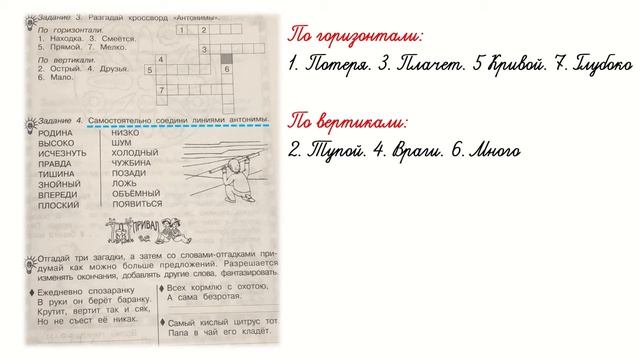 Задание 3. Разгадай кроссворд «Антонимы».
По горизонтали:
1. Находка. 3. Смеётся.
5. Прямой. 7. Мелко.
По вертикали:
2. Острый. 4. Друзья.
6. Мало.
1 2
3
4
5 6
7
Задание 4. Самостоятельно соедини линиями антонимы.
РОДИНА НИЗКО
ВЫСОКО ШУМ
ИСЧЕЗНУТЬ ХОЛОДНЫЙ
ПРАВДА ЧУЖБИНА
ТИШИНА ПОЗАДИ
ЗНОЙНЫЙ ЛОЖЬ
ВПЕРЕДИ ОБЪЁМНЫЙ
ПЛОСКИЙ ПОЯВИТЬСЯ
ПРИВАЛ
Отгадай три загадки, а затем со словами-отгадками при-
думай как можно больше предложений. Разрешается
изменять окончания, добавлять другие слова, фантазировать.
Ежедневно спозаранку
В руки он берёт баранку.
Крутит, вертит так и сяк,
Но не съест её никак.
Всех кормлю с охотою,
А сама безротая.
Самый кислый цитрус тот
Папа в чай его кладёт.
По горизонтали:
1. Потеря. 3. Плачет. 5 Кривой. 7. Глубоко
По вертикали:
2. Тупой. 4. Враги. 6. Много